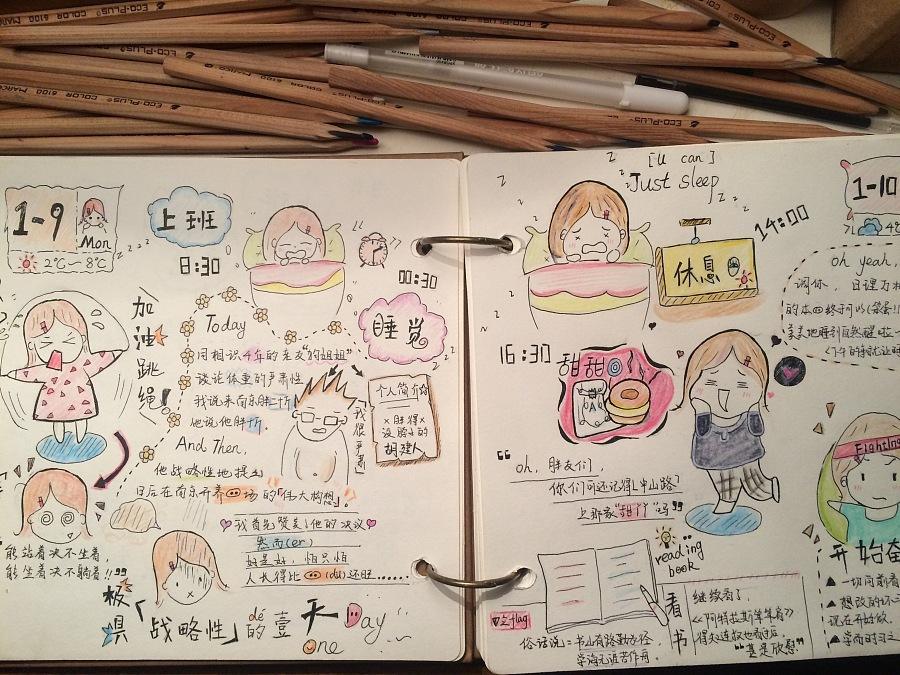 ECO-PLUS
MARCO
COLOR 6100 MARCO ECO-PLUS
6100 COLOR
ECO-PLUS
ECO-PLUS
1-9
Mon
2℃~8℃
上班
8:30
00:30
睡觉
加油跳绳!
Today
同相识4年的老友"的姐姐"
谈论体重的严肃性
我说来南乐胖三斤
他说他胖1斤
And Then,
他战略性地提出
日后在南乐开养 场的「伟大构想」.
我首先赞美了他的决议
然而(er)
好是好,怕只怕
人长得比 (du)还旺......
我很严肃
个人简介
×胖得×
没脖子的
胡建人
能站着决不坐着,
能坐着决不躺着!!"
极具「战略性」dé的壹天 Day One
[u can]
Just sleep
14:00
休息
16:30
甜甜
"oh, 胖友们,
你们可还记得[半山路]
上那家"甜竹"吗"
reading book
立flag
看书
继续看了,
《阿特拉斯耸耸肩》
"甚是欣慰"
俗话说=书山有路勤为径
学海无涯苦作舟.
1-10
oh yeah,
调休, 日理万机
的本
美美地睡到自然醒啦
Fighting
开始奋
▲一切向前看
▲想改的
现在开始做.
▲学而时习之